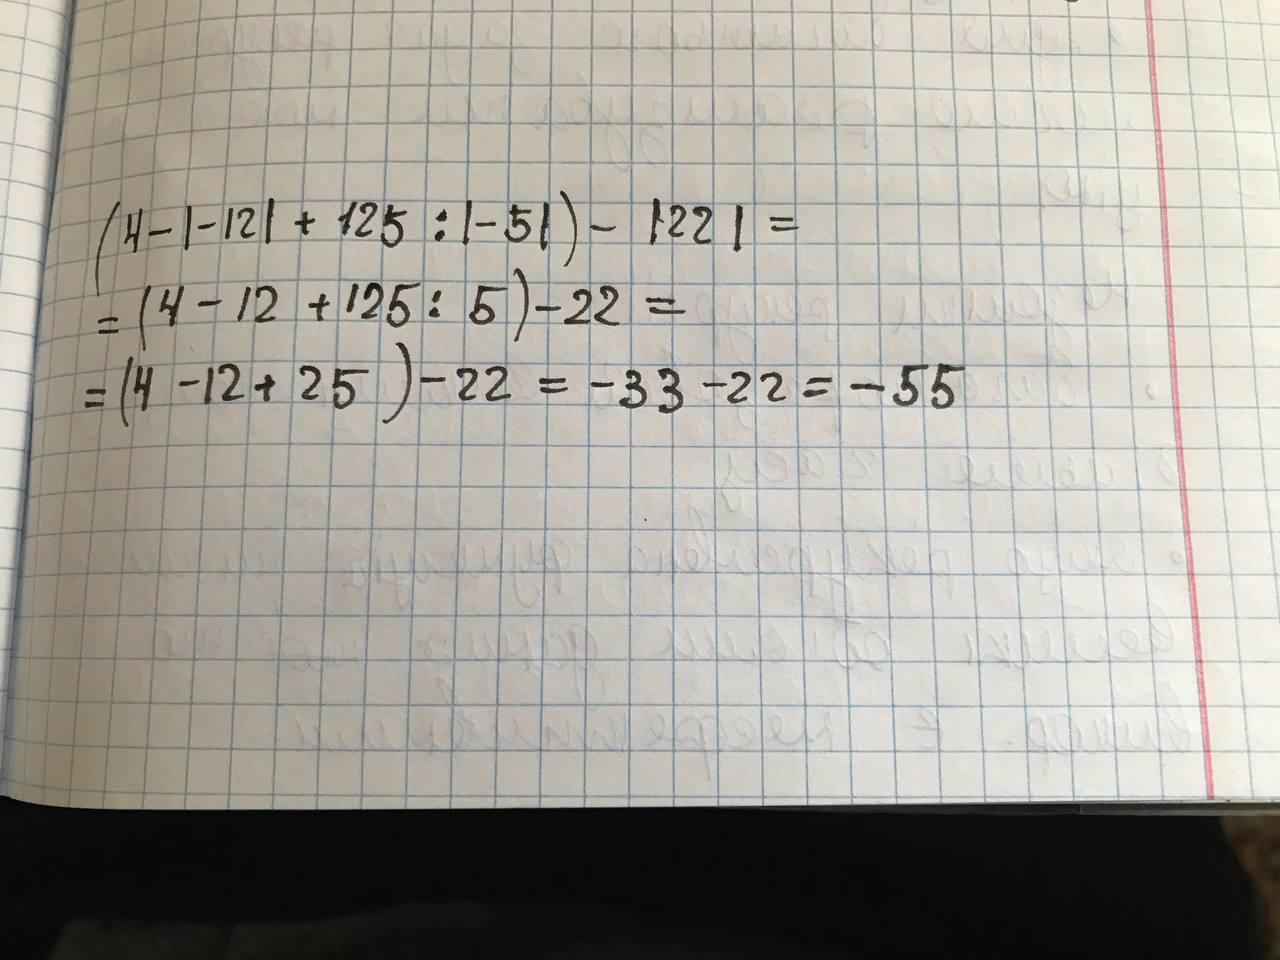 (4-|-12|+125:|-5|)-|22|=
=(4-12+125:5)-22=
=(4-12+25)-22=-33-22=-55